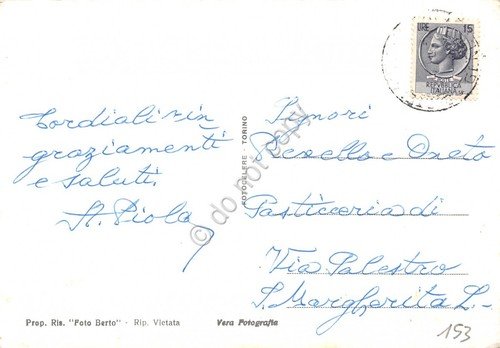 Cordiali rin
graziamenti
e saluti.
A. Piola
FOTOCELERE - TORINO
LIRE 15
REPVBBLICA
ITALIANA
Signori
e Oneto
Pasticceria di
Via Palestro
S. Margherita L.
Prop. Ris. "Foto Berto" - Rip. Vietata
Vera Fotografia
153
© do not copy